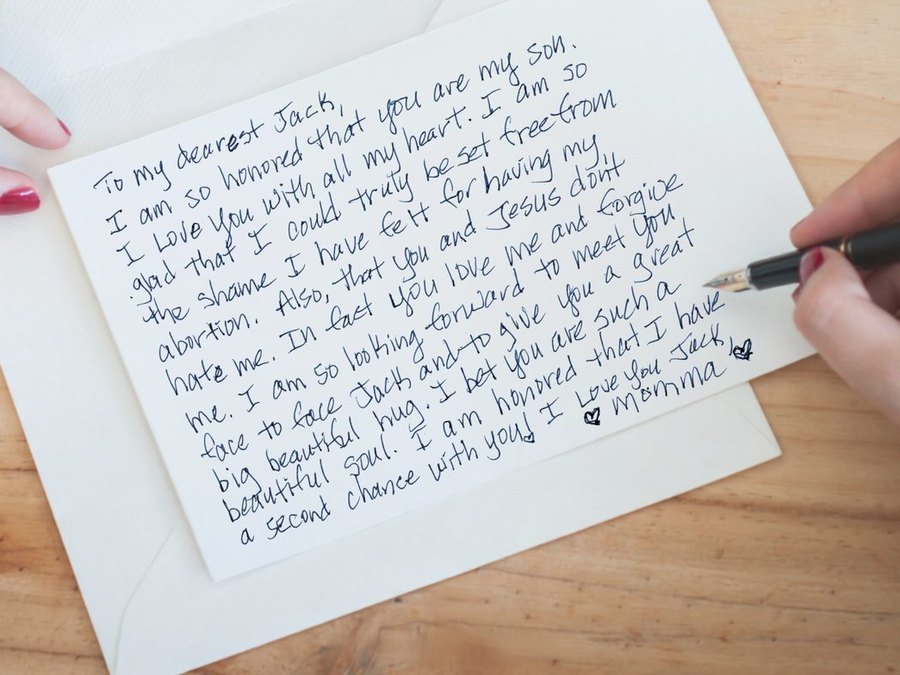 To my dearest Jack,
I am so honored that you are my son.
I Love you with all my heart. I am so
glad that I could truly be set free from
the shame I have felt for having my
abortion. Also, that you and Jesus don't
hate me. In fact you love me and forgive
me. I am so looking forward to meet you
face to face Jack and to give you a great
big beautiful hug. I bet you are such a
beautiful soul. I am honored that I have
a second chance with you! I Love you Jack!
momma